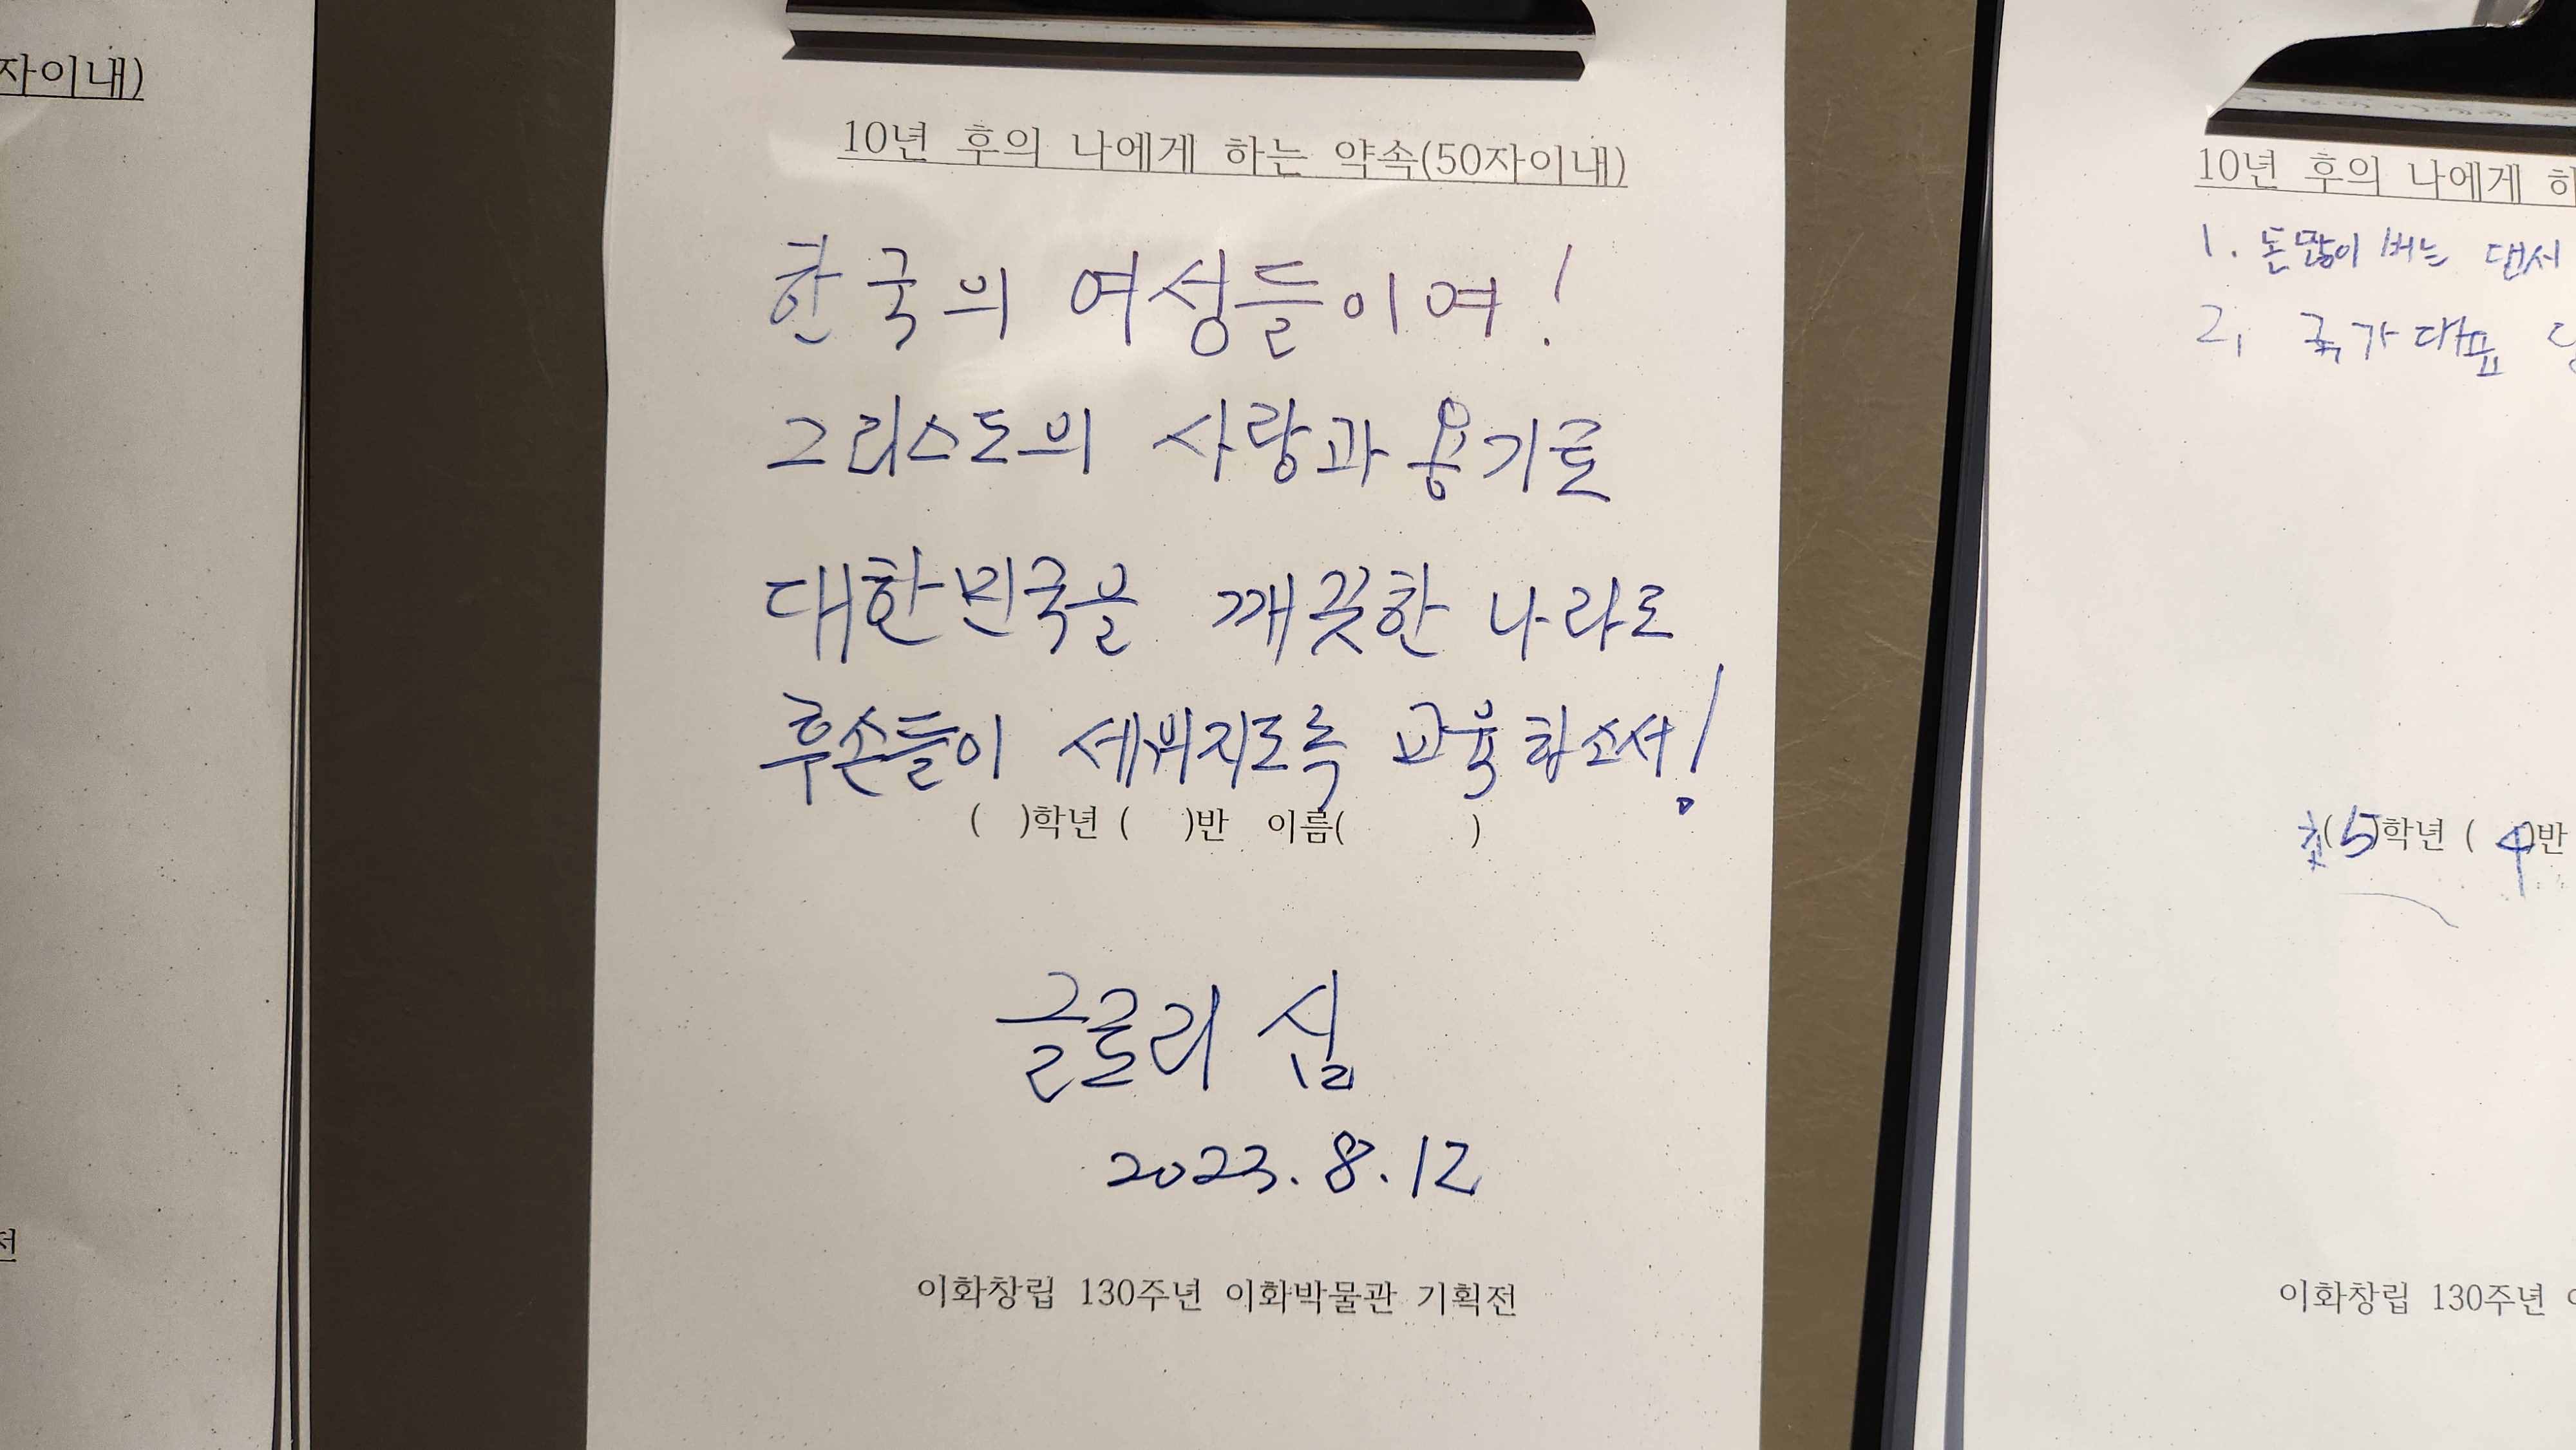 자이내)
10년 후의 나에게 하는 약속(50자이내)
한국의 여성들이여!
그리스도의 사랑과 용기로
대한민국을 깨끗한 나라로
후손들이 세워지도록 교육하소서!
( )학년 ( )반 이름( )
글로리 심
2023. 8. 12
이화창립 130주년 이화박물관 기획전
10년 후의 나에게 하
1. 돈많이 버는 댄서
2. 국가대표
초(5)학년 ( 4)반
이화창립 130주년
전